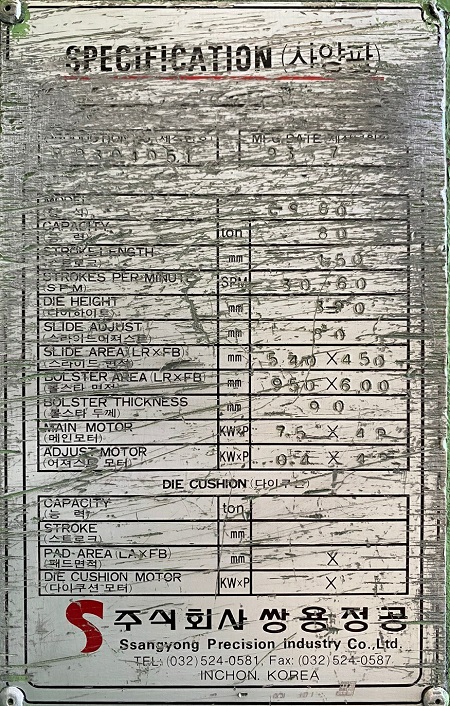 SPECIFICATION (사양판)
MFG.DATE
MODEL
CAPACITY ton 80
(능 력)
STROKE LENGTH mm 150
STROKES PER MINUTE SPM 30/60
(S P M)
DIE HEIGHT mm
(다이하이트)
SLIDE ADJUST mm
(스라이드어져스트)
SLIDE AREA (LR×FB) mm 540 × 450
(스라이드 면적)
BOLSTER AREA (LR×FB) mm 950 × 600
(볼스타 면적)
BOLSTER THICKNESS mm 90
(볼스타 두께)
MAIN MOTOR KW×P 7.5 × 4P
(메인모터)
ADJUST MOTOR KW×P 0.4 × 4P
(어져스트 모터)
DIE CUSHION (다이쿠션)
CAPACITY ton
(능 력)
STROKE mm
(스트로크)
PAD-AREA (LA×FB) ×
(패드면적)
DIE CUSHION MOTOR KW×P ×
(다이쿠션 모터)
주식회사 쌍용정공
Ssangyong Precision Industry Co.,Ltd.
TEL: (032) 524-0581, Fax: (032) 524-0587
INCHON, KOREA